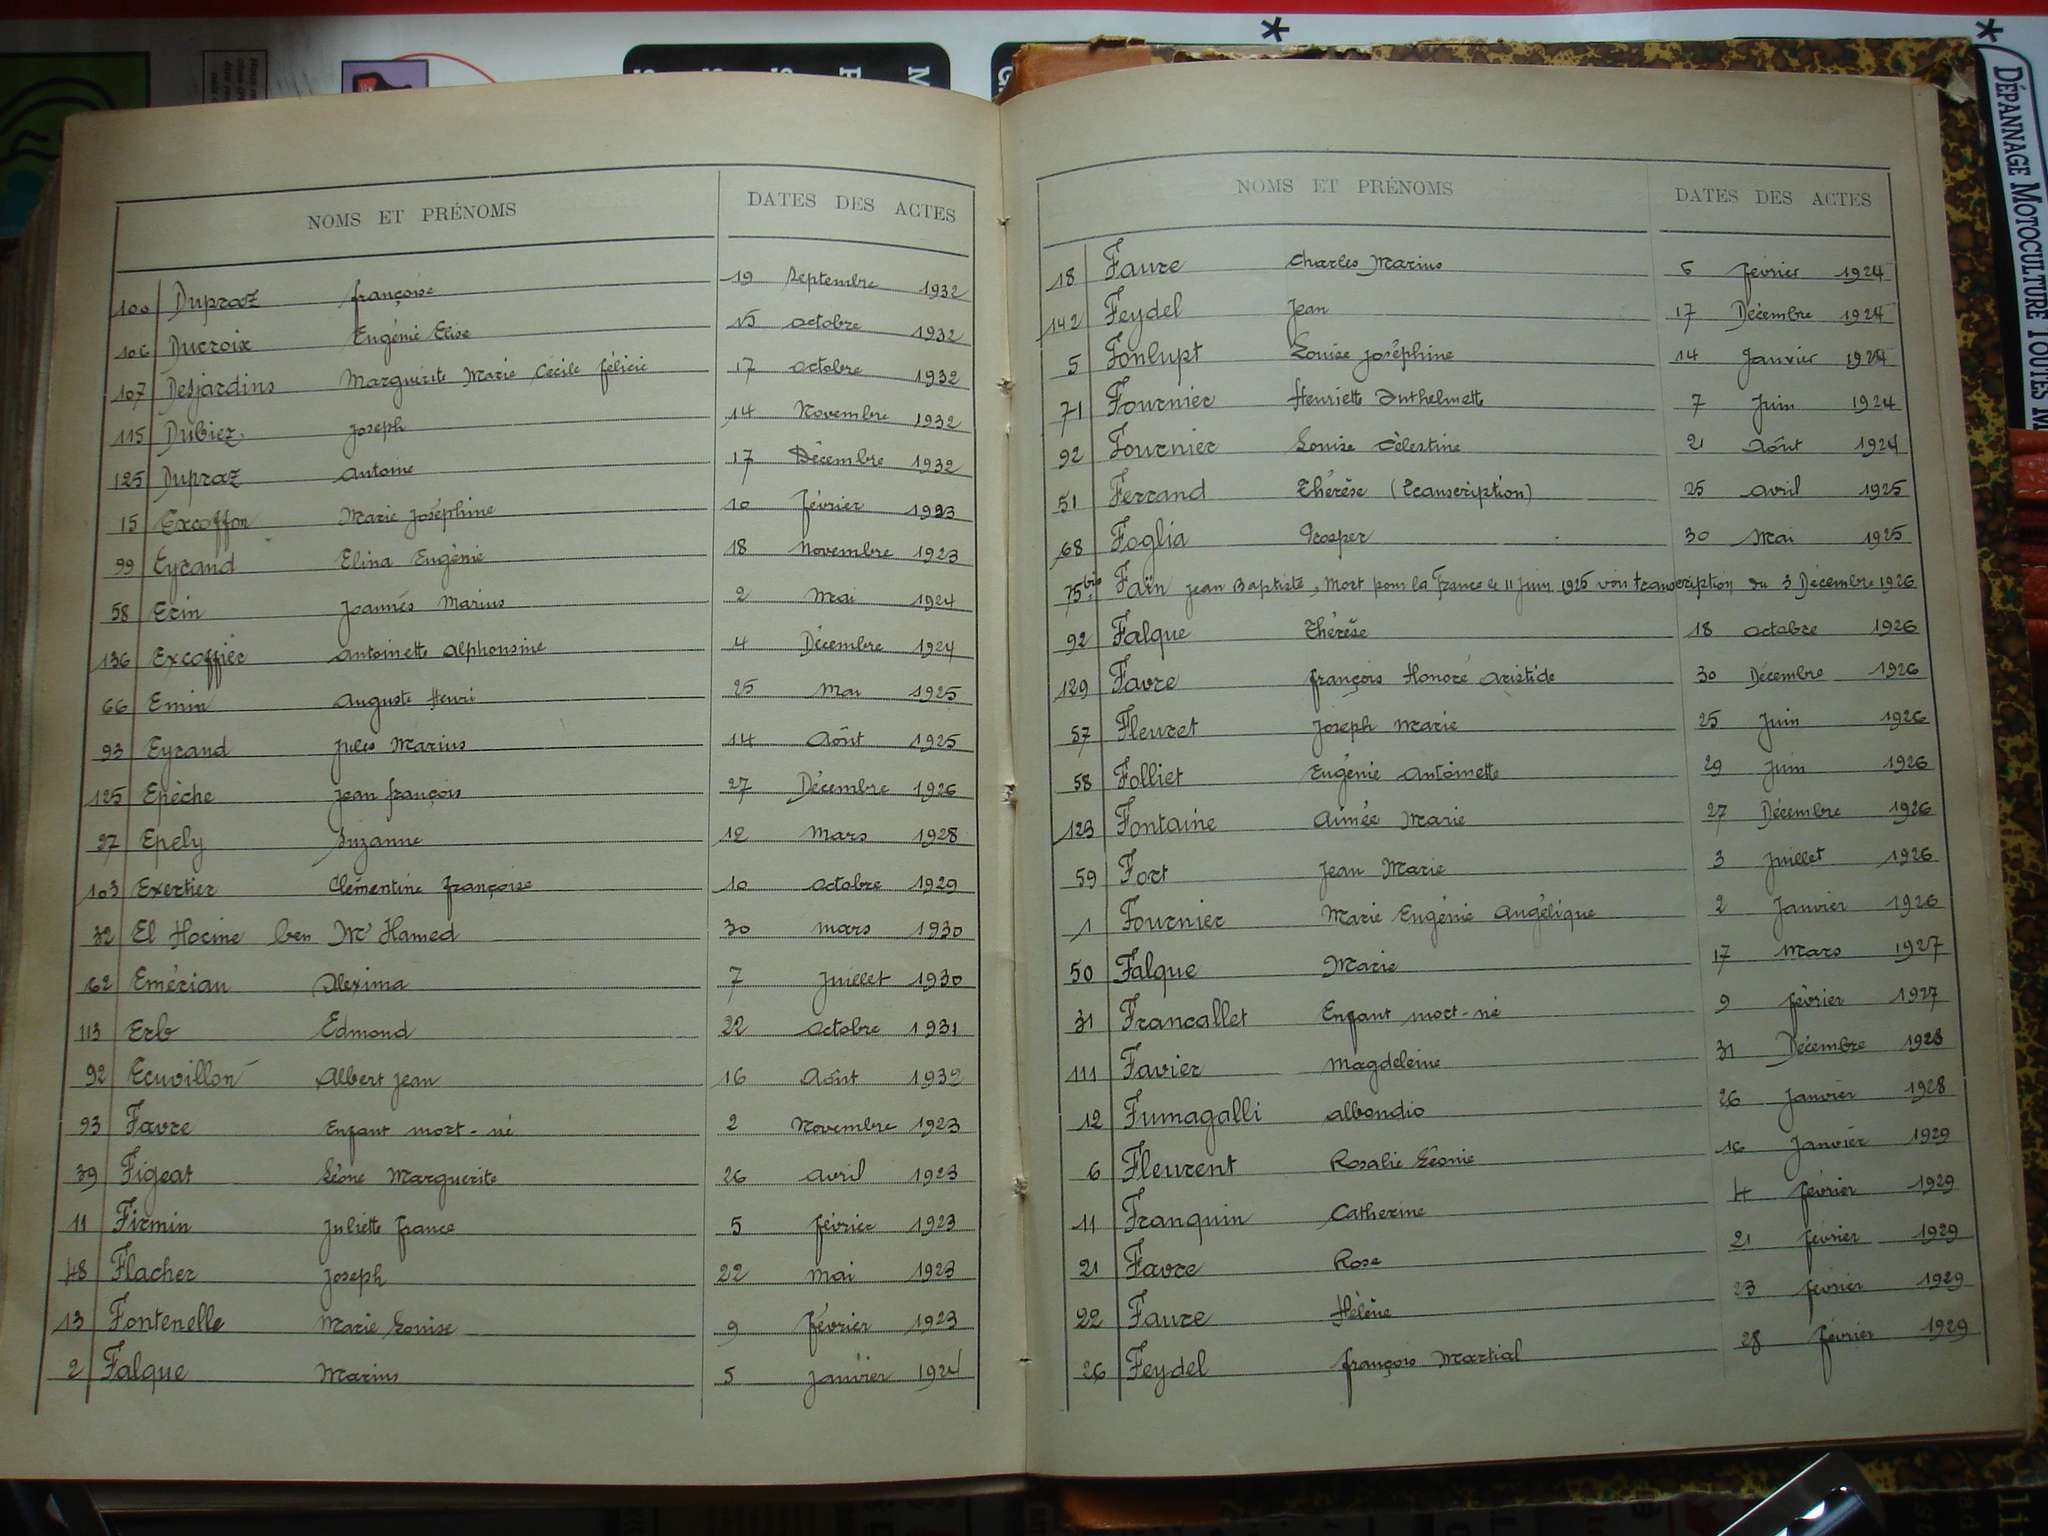 NOMS ET PRÉNOMS DATES DES ACTES
100 Dupraz françoise 19 Septembre 1932
106 Ducroix Eugénie Elise 15 octobre 1932
107 Desjardins Marguerite Marie Cécile félicie 17 octobre 1932
115 Dubiez Joseph 14 Novembre 1932
125 Dupraz Antoine 17 Décembre 1932
15 Excoffon Marie Joséphine 10 février 1923
99 Eyraud Elina Eugénie 18 Novembre 1923
58 Ecin Joannés Marius 2 Mai 1924
136 Excoffier Antoinette Alphonsine 4 Décembre 1924
66 Emin Auguste Henri 25 Mai 1925
93 Eyraud Jules Marius 14 Août 1925
125 Epèche Jean françois 27 Décembre 1926
27 Epely Suzanne 12 Mars 1928
103 Exertier Clémentine françoise 10 octobre 1929
32 El Hocine ben M'Hamed 30 mars 1930
62 Emérian Alexima 7 Juillet 1930
113 Erb Edmond 22 octobre 1931
92 Ecuvillon Albert Jean 16 Août 1932
93 Favre Enfant mort-né 2 Novembre 1923
39 Figeat Léone Marguerite 26 avril 1923
11 Firmin Juliette france 5 février 1923
48 Flacher Joseph 22 mai 1923
13 Fontenelle Marie Louise 9 février 1923
2 Falque Marius 5 janvier 1924
NOMS ET PRÉNOMS DATES DES ACTES
18 Faure Charles Marius 6 février 1924
142 Feydel Jean 17 Décembre 1924
5 Fonlupt Louise Joséphine 14 Janvier 1924
71 Fournier Henriette Anthelmette 7 Juin 1924
92 Fournier Louise Célestine 21 Août 1924
51 Ferrand Thérèse (Transcription) 25 avril 1925
68 Foglia Prosper 30 Mai 1925
75 bis Faïn Jean Baptiste, Mort pour la France le 11 Juin 1925 voir transcription du 3 Décembre 1926
92 Falque Thérèse 18 octobre 1926
129 Favre françois Honoré Aristide 30 Décembre 1926
57 Fleuret Joseph Marie 25 Juin 1926
58 Folliet Eugénie Antoinette 29 Juin 1926
123 Fontaine Aimée Marie 27 Décembre 1926
59 Fort Jean Marie 3 Juillet 1926
1 Fournier Marie Eugénie Angélique 2 Janvier 1926
50 Falque Marie 17 Mars 1927
31 Francallet Enfant mort-né 9 février 1927
111 Favier Magdeleine 31 Décembre 1928
12 Fumagalli Albondio 26 Janvier 1928
6 Fleurent Rosalie Léonie 16 Janvier 1929
11 Franquin Catherine 4 février 1929
21 Favre Rose 21 février 1929
22 Faure Hélène 23 février 1929
26 Feydel françois Martial 28 février 1929
DÉPANNAGE MOTOCULTURE TOUTES M